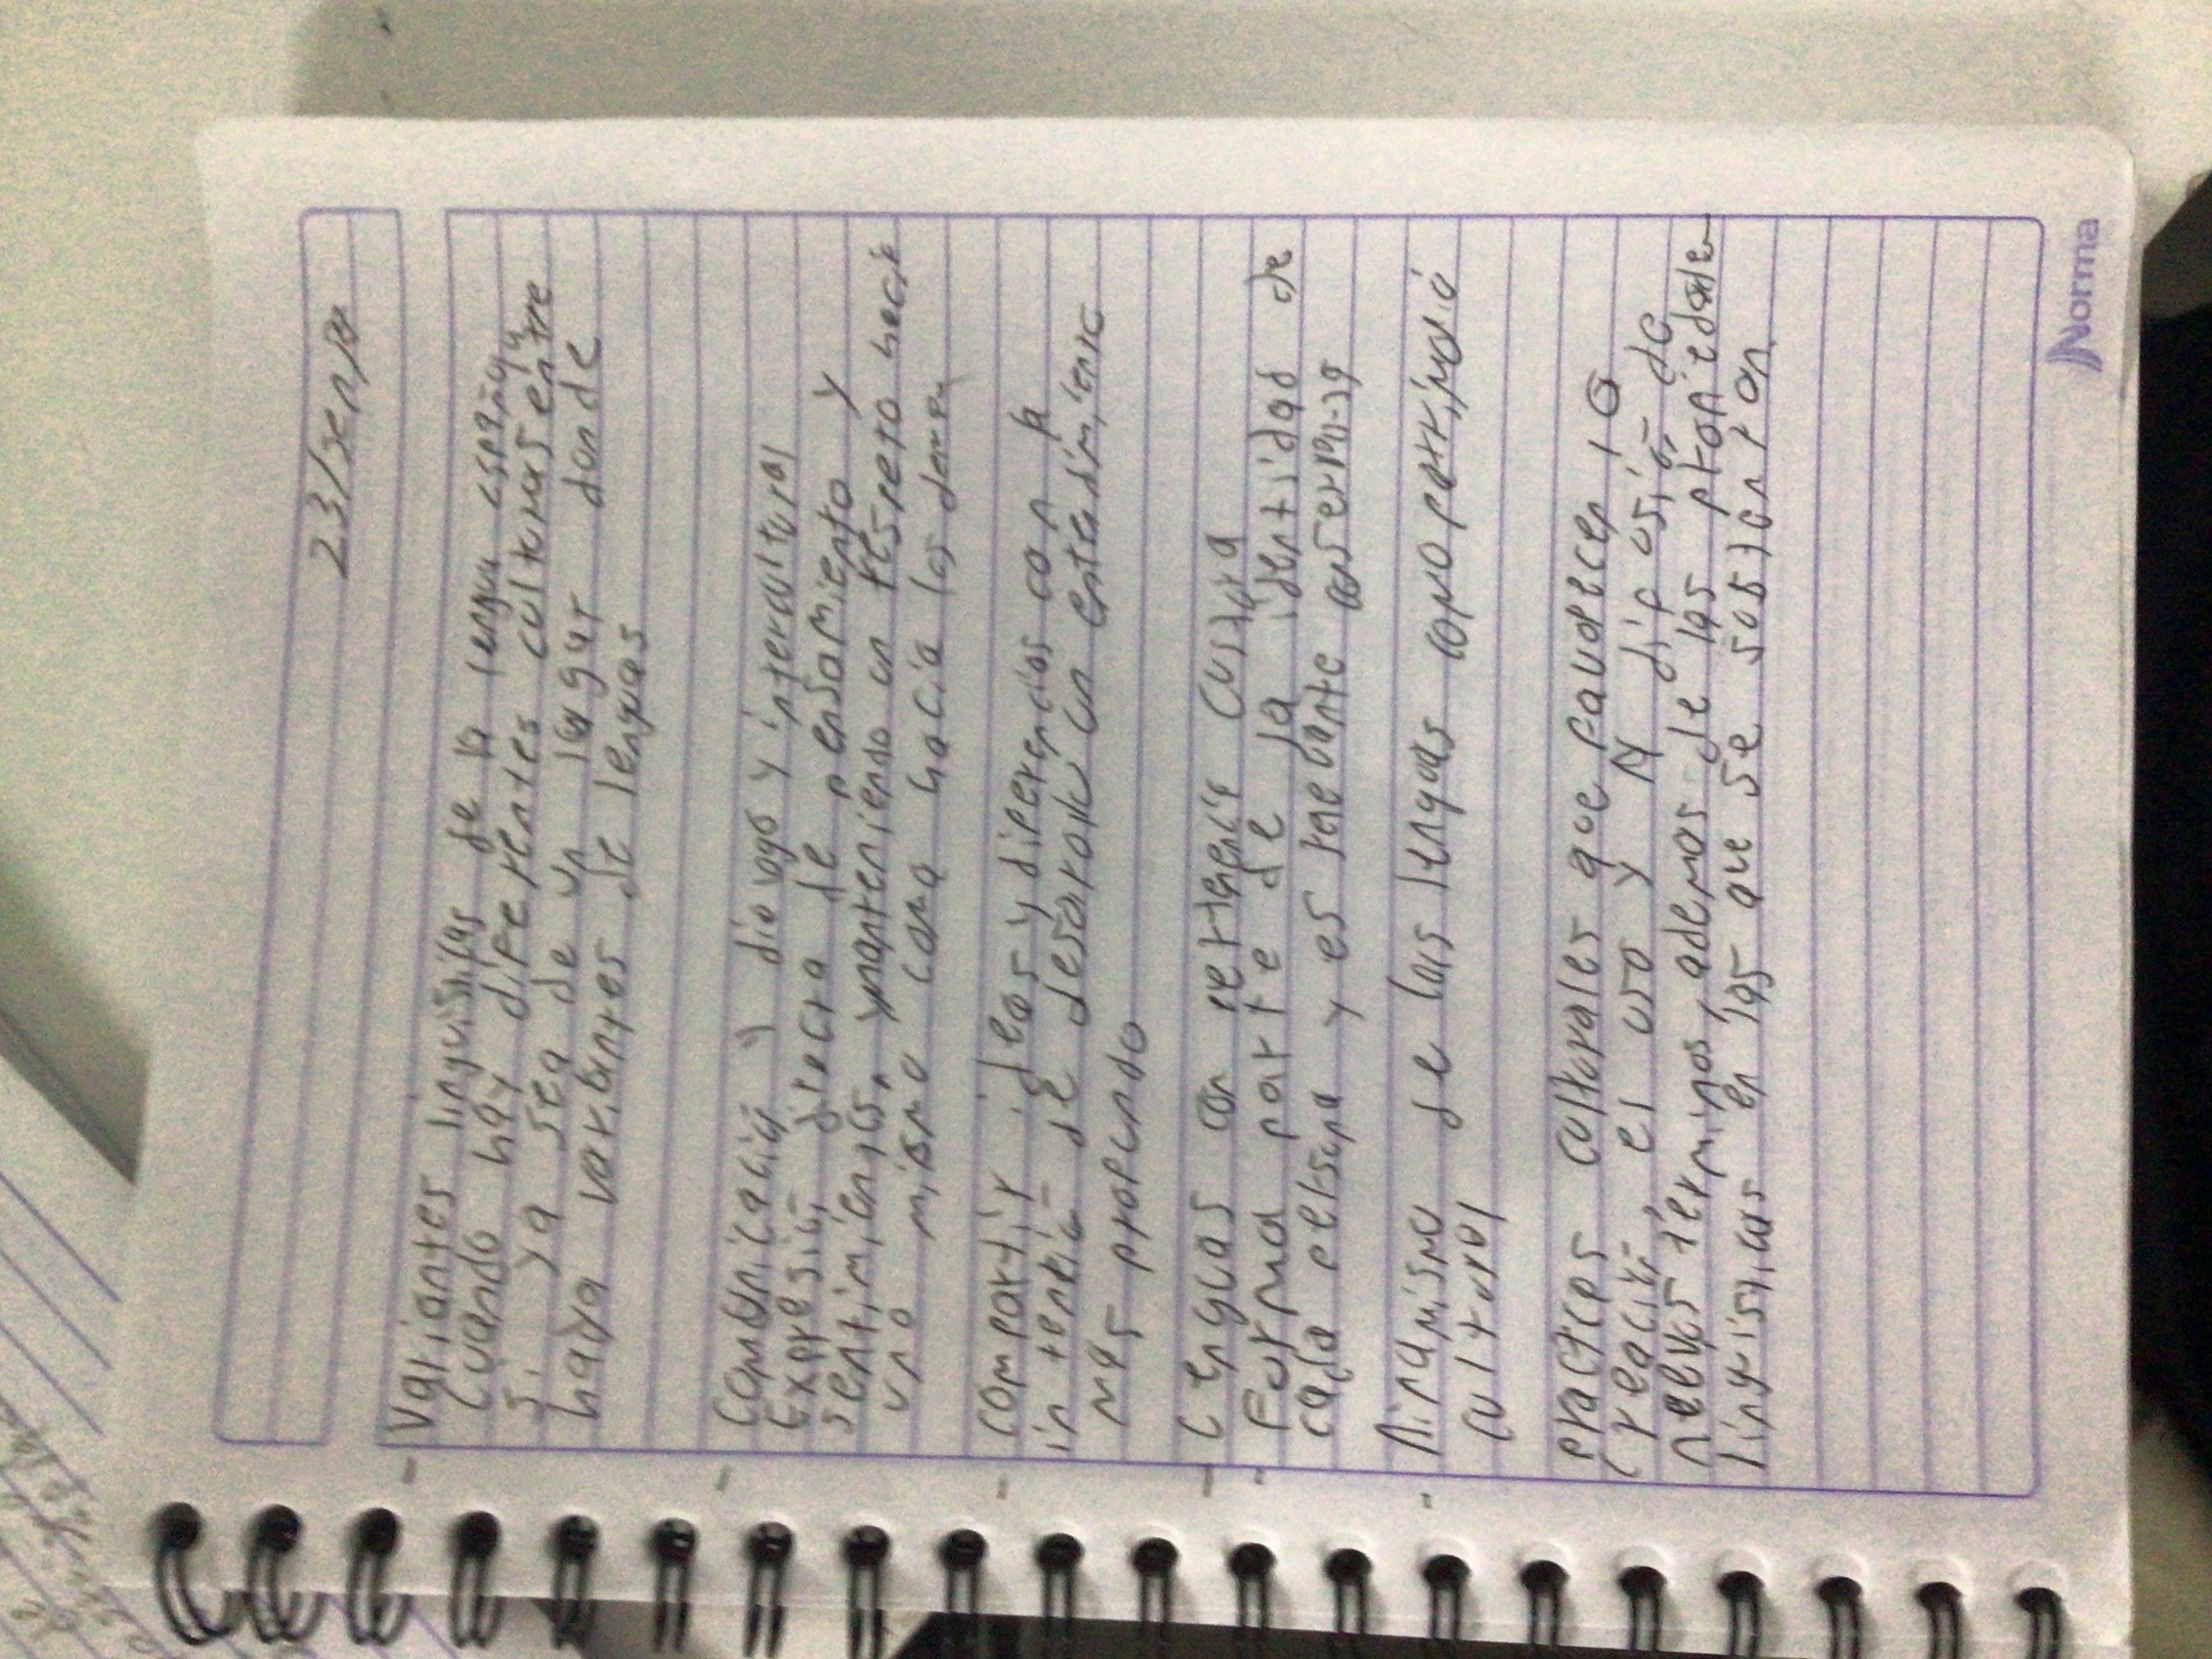 23/sep/
Variantes lingüisticas de la lengua española
Cuando hay diferentes culturas entre
si ya sea de un lugar donde
haya variantes de lenguas
Comunicación y dialogo y intercultural
Expresión directa de pensamiento y
sentimientos, manteniendo un respeto hacia
uno mismo como hacia los demas
compartir ideas y diferencias con la
intención de desarrollar un entendimiento
mas profundo
Lenguas con pertenencia
Forma parte de la identidad de
cada persona y es relevante conservarla
Dinamismo de las lenguas como patrimonio
cultural
practicas culturales que favorecen la
creación, el uso y la difusión de
nuevos términos, ademas de las propiedades
lingüisticas en las que se
Norma